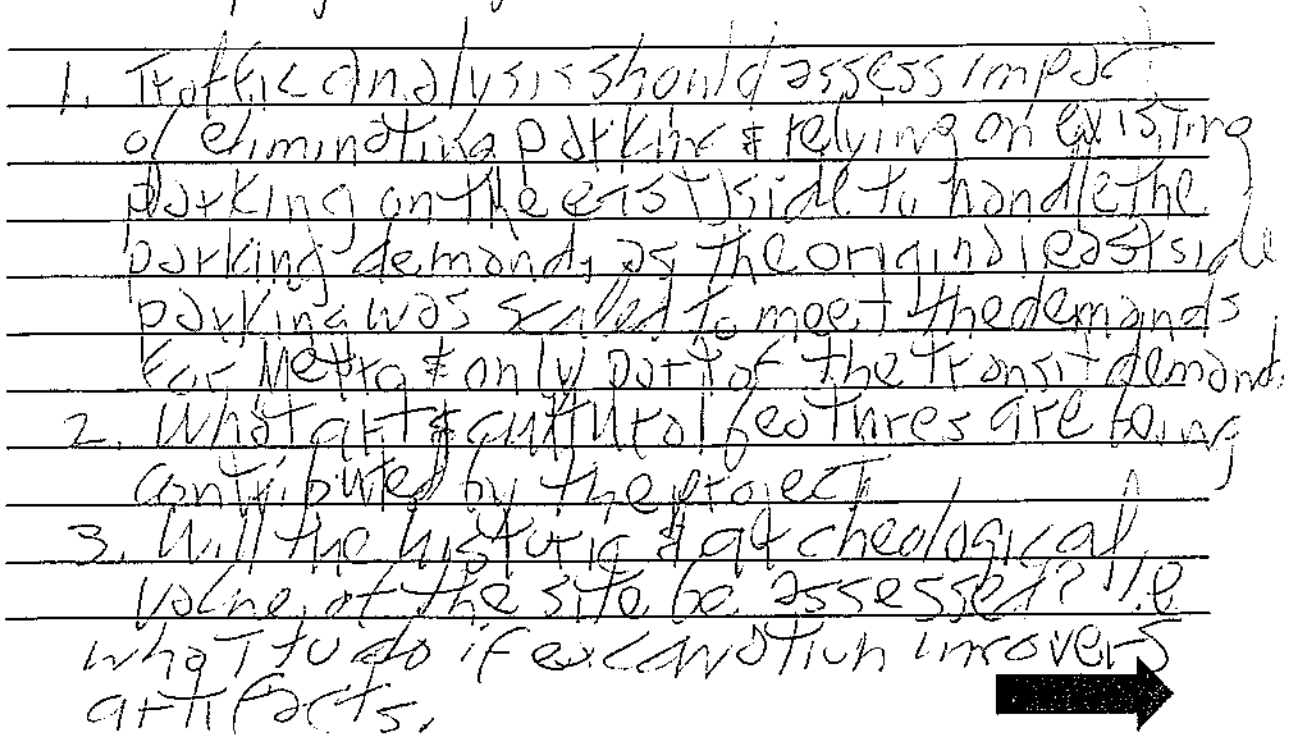 1. Traffic analysis should assess impact
of eliminating parking & relying on existing
parking on the east side to handle the
parking demand, as the original east side
parking was scaled to meet the demands
for Metro & only part of the transit demand.
2. What arts & cultural features are being
contributed by the project
3. Will the historic & archeological
value of the site be assessed? i.e
what to do if excavation uncovers
artifacts.